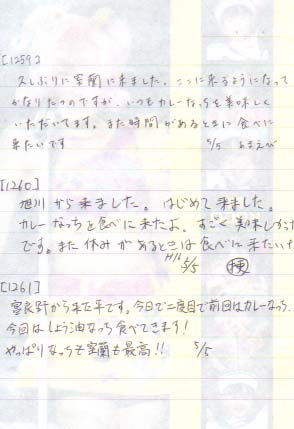 [1259]
久しぶりに室蘭に来ました。ここに来るようになって
かなりたつのですが、いつもカレーなっちを美味しく
いただいてます。また時間があるときに食べに
来たいです
5/5 あまえび
[1260]
旭川から来ました。はじめて来ました。
カレーなっちを食べに来たよ。すごく美味しかった
です。また休みがあるときは食べに来たいた
H16 5/5
[1261]
富良野から来た平です。今日で二度目で前回はカレーなっち、
今回はしょう油なっち食べてきます!
やっぱりなっちも室蘭も最高!! 5/5